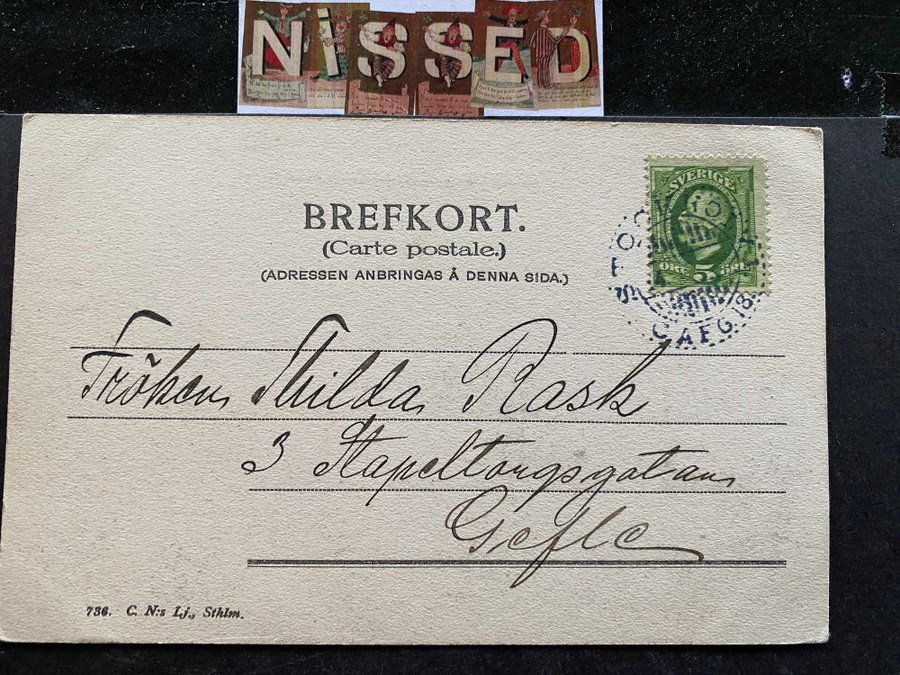 NISSED
BREFKORT.
(Carte postale.)
(ADRESSEN ANBRINGAS Å DENNA SIDA.)
SVERIGE
ÖRE 5 ÖRE
Fröken Thilda Rask
3 Stapeltorgsgatan
Gefle
736. C. N:s Lj., Sthlm.